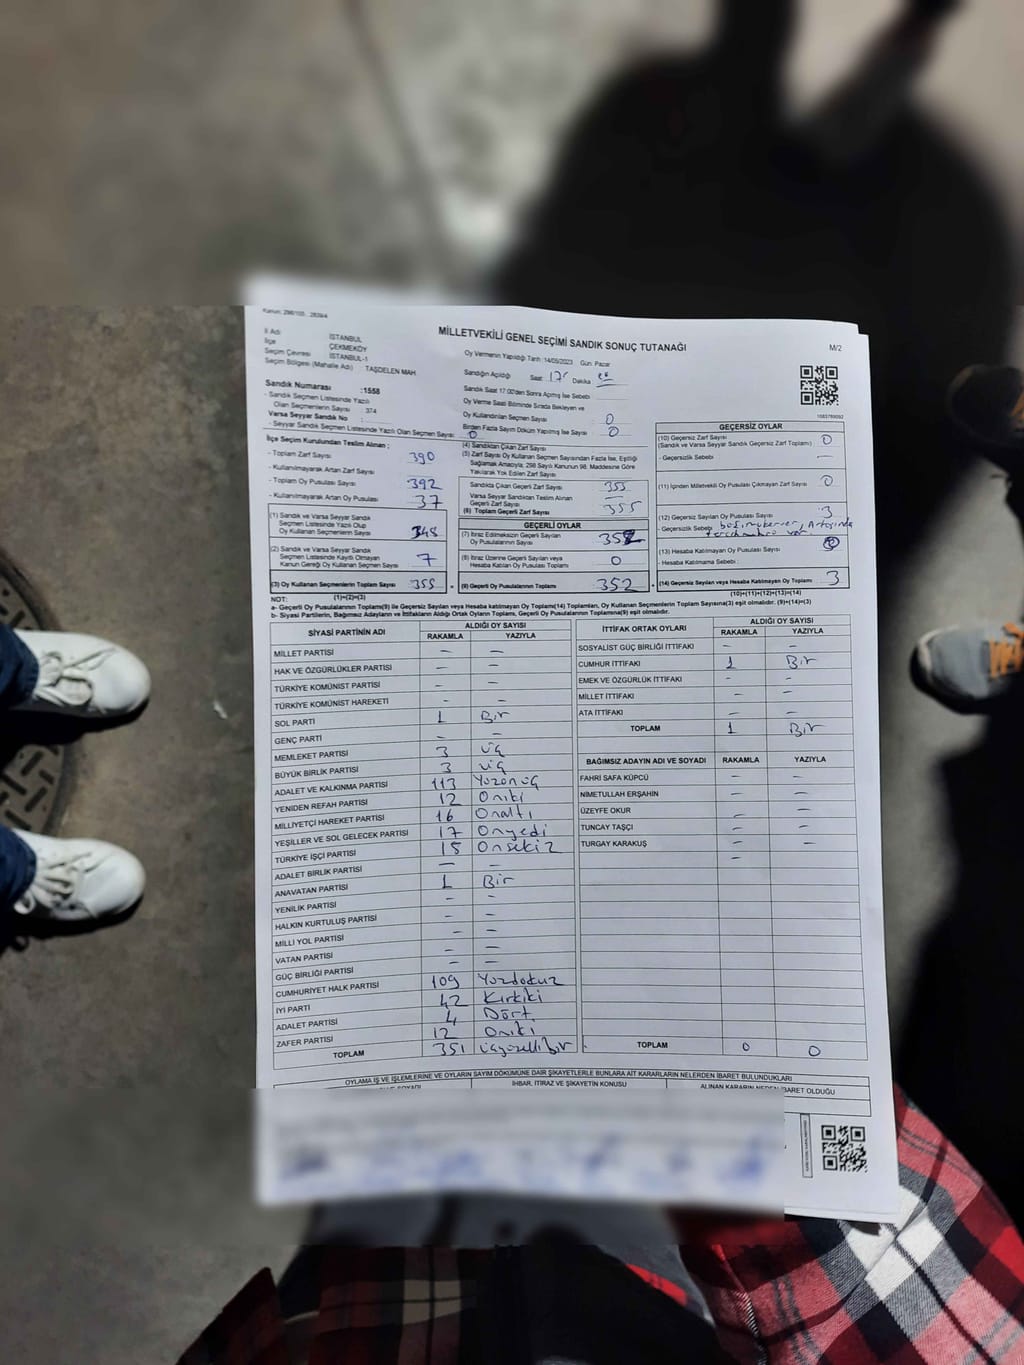 Kanun: 298/105 , 2839/4
MİLLETVEKİLİ GENEL SEÇİMİ SANDIK SONUÇ TUTANAĞI
M/2
İl Adı İSTANBUL
İlçe ÇEKMEKÖY
Seçim Çevresi İSTANBUL-1
Seçim Bölgesi (Mahalle Adı) TAŞDELEN MAH
Oy Vermenin Yapıldığı Tarih :14/05/2023 Gün: Pazar
Sandığın Açıldığı Saat: 17 Dakika
Sandık Saat 17:00'den Sonra Açılmış İse Sebebi
Oy Verme Saati Bitiminde Sırada Bekleyen ve
Oy Kullandırılan Seçmen Sayısı 0
Birden Fazla Sayım Döküm Yapılmış İse Sayısı 0
Sandık Numarası :1558
- Sandık Seçmen Listesinde Yazılı
Olan Seçmenlerin Sayısı 374
Varsa Seyyar Sandık No :
- Seyyar Sandık Seçmen Listesinde Yazılı Olan Seçmen Sayısı 0
İlçe Seçim Kurulundan Teslim Alınan ;
- Toplam Zarf Sayısı 390
- Kullanılmayarak Artan Zarf Sayısı
- Toplam Oy Pusulası Sayısı 392
- Kullanılmayarak Artan Oy Pusulası 37
(1) Sandık ve Varsa Seyyar Sandık
Seçmen Listesinde Yazılı Olup
Oy Kullanan Seçmenlerin Sayısı 348
(2) Sandık ve Varsa Seyyar Sandık
Seçmen Listesinde Kayıtlı Olmayan
Kanun Gereği Oy Kullanan Seçmen Sayısı 7
(3) Oy Kullanan Seçmenlerin Toplam Sayısı 355
(1)+(2)=(3)
(4) Sandıktan Çıkan Zarf Sayısı
(5) Zarf Sayısı Oy Kullanan Seçmen Sayısından Fazla İse, Eşitliği
Sağlamak Amacıyla; 298 Sayılı Kanunun 98. Maddesine Göre
Yakılarak Yok Edilen Zarf Sayısı
Sandıkta Çıkan Geçerli Zarf Sayısı 355
Varsa Seyyar Sandıktan Teslim Alınan
Geçerli Zarf Sayısı —
(6) Toplam Geçerli Zarf Sayısı 355
GEÇERLİ OYLAR
(7) İtiraz Edilmeksizin Geçerli Sayılan
Oy Pusulalarının Sayısı 352
(8) İtiraz Üzerine Geçerli Sayılan veya
Hesaba Katılan Oy Pusulası Sayısı 0
(9) Geçerli Oy Pusulalarının Toplamı 352
GEÇERSİZ OYLAR
(10) Geçersiz Zarf Sayısı
(Sandık ve Varsa Seyyar Sandık Geçersiz Zarf Toplamı) 0
- Geçersizlik Sebebi : —
(11) İçinden Milletvekili Oy Pusulası Çıkmayan Zarf Sayısı 0
(12) Geçersiz Sayılan Oy Pusulası Sayısı 3
- Geçersizlik Sebebi :
(13) Hesaba Katılmayan Oy Pusulası Sayısı
- Hesaba Katılmama Sebebi :
(14) Geçersiz Sayılan veya Hesaba Katılmayan Oy Toplamı 3
(10)+(11)+(12)+(13)=(14)
NOT:
a- Geçerli Oy Pusulalarının Toplamı(9) ile Geçersiz Sayılan veya Hesaba Katılmayan Oy Toplamı(14) Toplamları, Oy Kullanan Seçmenlerin Toplam Sayısına(3) eşit olmalıdır. (9)+(14)=(3)
b- Siyasi Partilerin, Bağımsız Adayların ve İttifakların Aldığı Ortak Oyların Toplamı, Geçerli Oy Pusulalarının Toplamına(9) eşit olmalıdır.
SİYASİ PARTİNİN ADI ALDIĞI OY SAYISI
RAKAMLA YAZIYLA
MİLLET PARTİSİ — —
HAK VE ÖZGÜRLÜKLER PARTİSİ — —
TÜRKİYE KOMÜNİST PARTİSİ — —
TÜRKİYE KOMÜNİST HAREKETİ — —
SOL PARTİ 1 Bir
GENÇ PARTİ — —
MEMLEKET PARTİSİ 3 üç
BÜYÜK BİRLİK PARTİSİ 3 üç
ADALET VE KALKINMA PARTİSİ 113 Yüzonüç
YENİDEN REFAH PARTİSİ 12 Oniki
MİLLİYETÇİ HAREKET PARTİSİ 16 Onaltı
YEŞİLLER VE SOL GELECEK PARTİSİ 17 Onyedi
TÜRKİYE İŞÇİ PARTİSİ 18 Onsekiz
ADALET BİRLİK PARTİSİ — —
ANAVATAN PARTİSİ 1 Bir
YENİLİK PARTİSİ — —
HALKIN KURTULUŞ PARTİSİ — —
MİLLİ YOL PARTİSİ — —
VATAN PARTİSİ — —
GÜÇ BİRLİĞİ PARTİSİ — —
CUMHURİYET HALK PARTİSİ 109 Yüzdokuz
İYİ PARTİ 42 Kırkiki
ADALET PARTİSİ 4 Dört
ZAFER PARTİSİ 12 Oniki
TOPLAM 351 üçyüzellibir
İTTİFAK ORTAK OYLARI ALDIĞI OY SAYISI
RAKAMLA YAZIYLA
SOSYALİST GÜÇ BİRLİĞİ İTTİFAKI — —
CUMHUR İTTİFAKI 1 Bir
EMEK VE ÖZGÜRLÜK İTTİFAKI — —
MİLLET İTTİFAKI — —
ATA İTTİFAKI — —
TOPLAM 1 Bir
BAĞIMSIZ ADAYIN ADI VE SOYADI RAKAMLA YAZIYLA
FAHRİ SAFA KÜPCÜ — —
NİMETULLAH ERŞAHİN — —
ÜZEYFE OKUR — —
TUNCAY TAŞÇI — —
TURGAY KARAKUŞ — —
TOPLAM 0 0
OYLAMA İŞ VE İŞLEMLERİNE VE OYLARIN SAYIM DÖKÜMÜNE DAİR ŞİKAYETLERLE BUNLARA AİT KARARLARIN NELERDEN İBARET BULUNDUKLARI
SOYADI İHBAR, İTİRAZ VE ŞİKAYETİN KONUSU ALINAN KARARIN NEDEN İBARET OLDUĞU